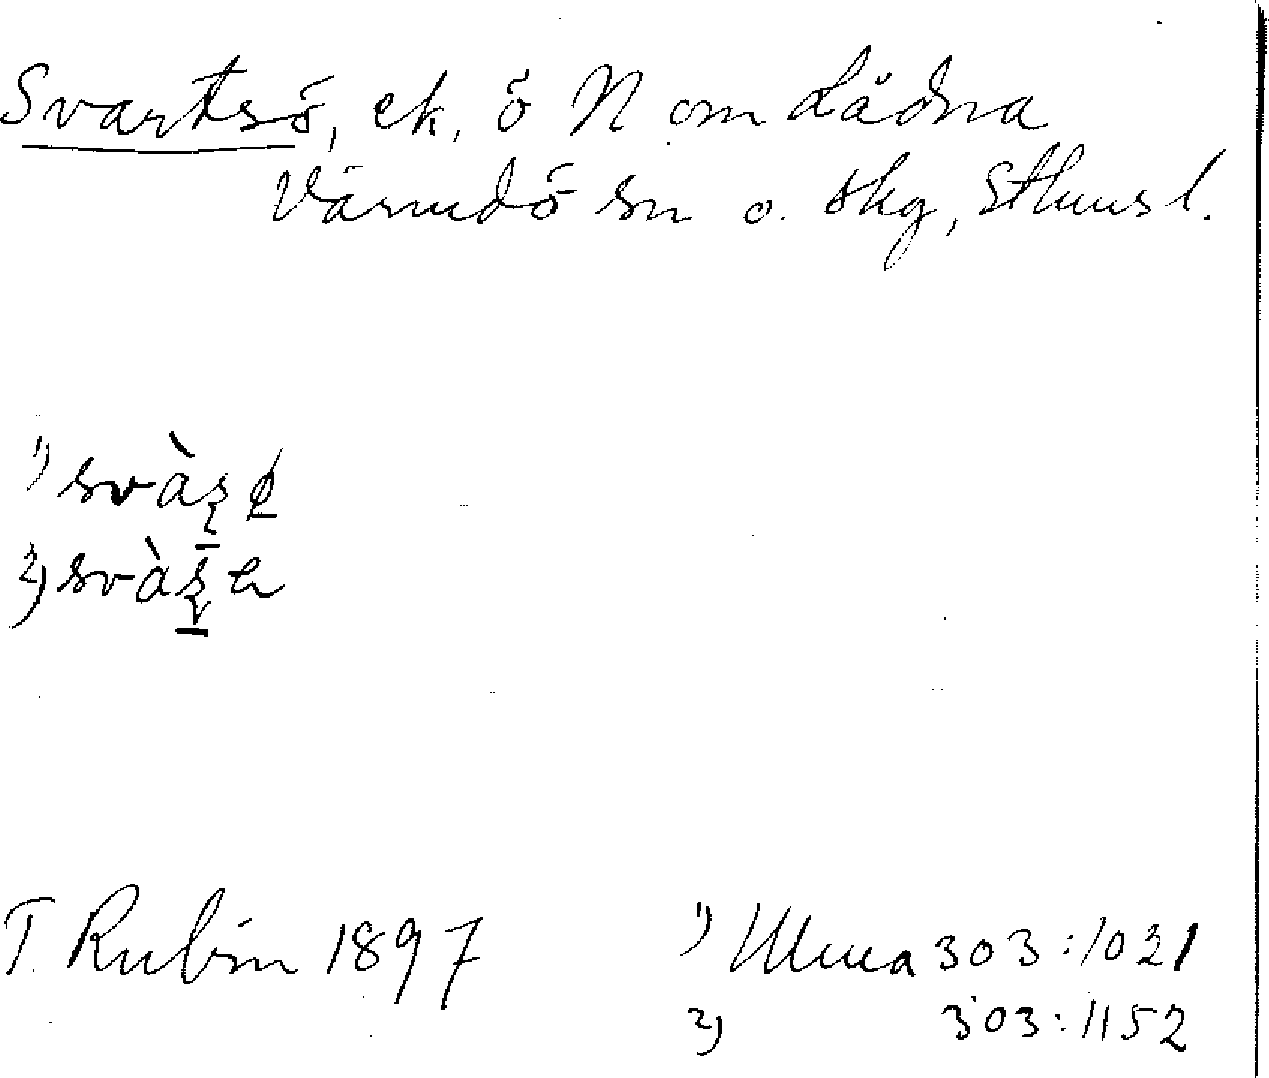 Svartsö, ek, ö N om Lådna
Värmdö sn o. skg, Sthms l.
1) svàȿ
2) svàȿ
T. Rubin 1897
1) Ulma 303:1021
2) 303:1152